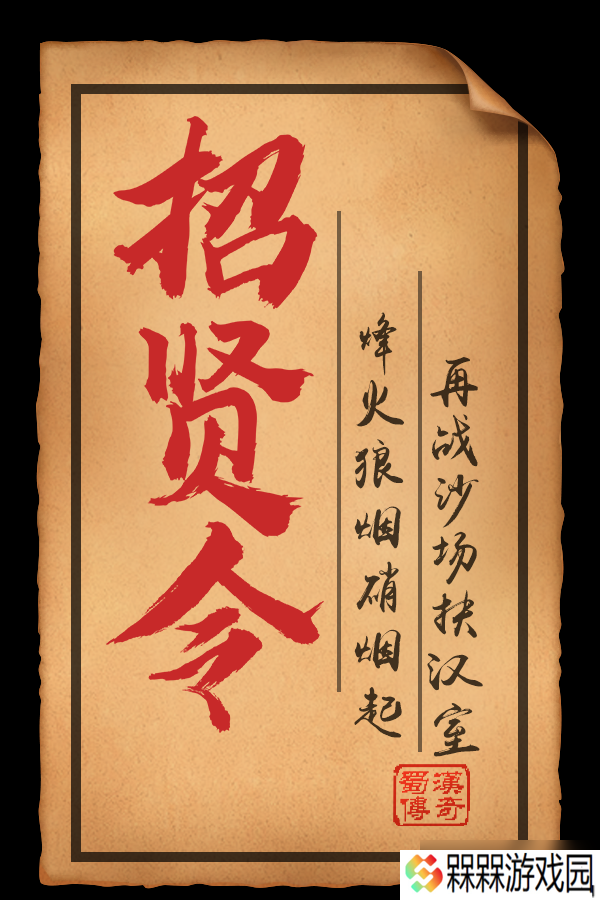 招贤令
烽火狼烟硝烟起
再战沙场扶汉室
蜀漢
傳奇
槑槑游戏园